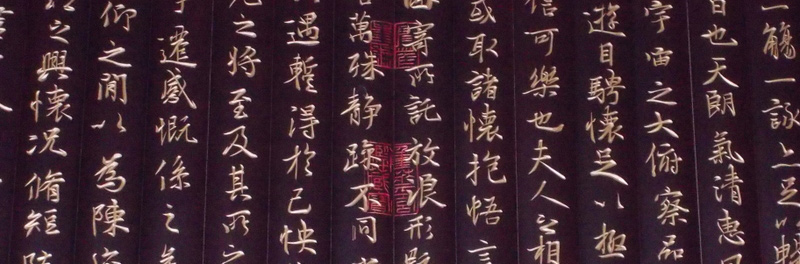 一觴一詠亦足以暢
日也天朗氣清惠風
宇宙之大俯察品
遊目騁懷足以極
信可樂也夫人之相
或取諸懷抱悟言
因寄所託放浪形骸
萬殊靜躁不同
遇暫得於己快
之將至及其所之
遷感慨係之矣
仰之間以為陳迹
之興懷況脩短隨